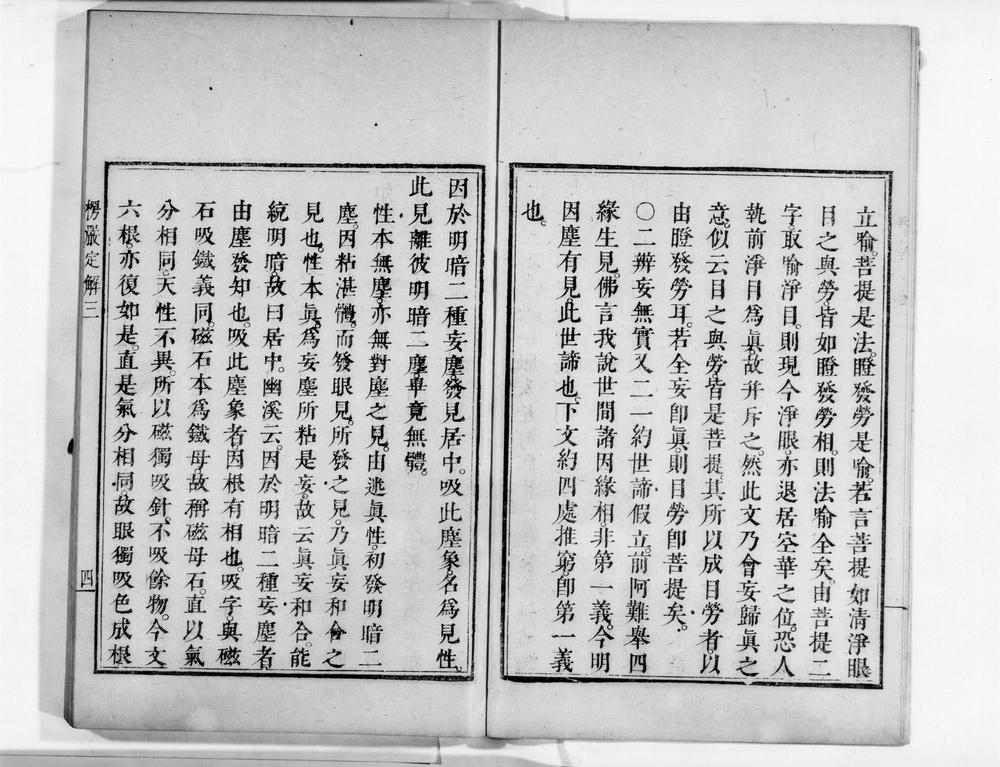 立喻。菩提是法。瞪發勞是喻。若言菩提如清淨眼
目之與勞。皆如瞪發勞相。則法喻全矣。由菩提二
字。取喻淨目。則現今淨眼。亦退居空華之位。恐人
執前淨目爲眞。故并斥之。然此文乃會妄歸眞之
意。似云目之與勞。皆是菩提。其所以成目勞者。以
由瞪發勞耳。若全妄卽眞。則目勞卽菩提矣。
〇二辨妄無實又二一約世諦假立。前阿難舉四
緣生見。佛言我說世間諸因緣相非第一義。今明
因塵有見。此世諦也。下文約四處推窮。卽第一義
也。
因於明暗二種妄塵發見居中。吸此塵象。名爲見性。
此見離彼明暗二塵。畢竟無體。
性本無塵。亦無對塵之見。由迷眞性。初發明暗二
塵。因粘湛體。而發眼見。所發之見。乃眞妄和合之
見也。性本眞。爲妄塵所粘是妄。故云眞妄和合。能
統明暗。故曰居中。幽溪云。因於明暗二種妄塵者。
由塵發知也。吸此塵象者。因根有相也。吸字。與磁
石吸鐵義同。磁石本爲鐵母。故稱磁母石。直以氣
分相同。天性不異。所以磁獨吸針。不吸餘物。今文
六根。亦復如是。直是氣分相同。故眼獨吸色成根
楞嚴定解三
四